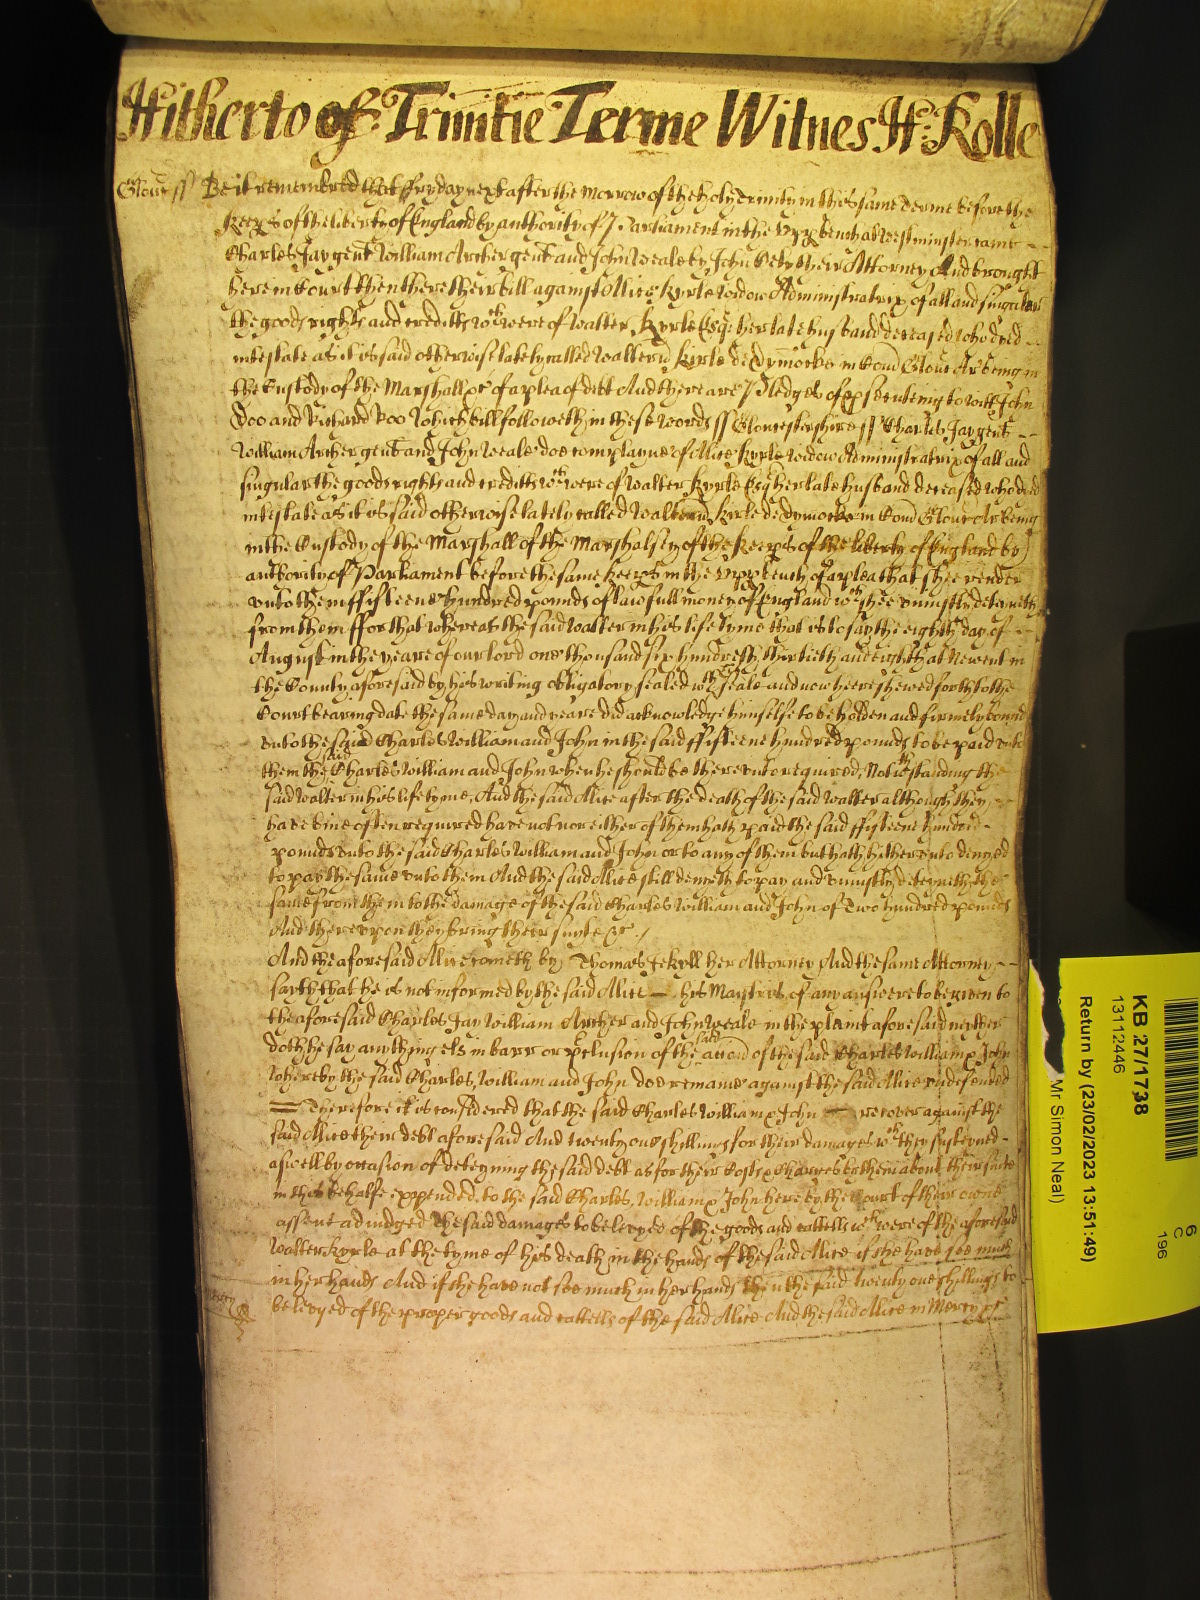 Hitherto of Trinitie Terme Witnes H: Rolle
Glouc ss Be it remembred that ffryday next after the morrow of the holy Trinity in this same Terme before the
Keeps of the liberty of England by authority of Parliament in the upp bench at Westminster came
Charles Jay gent William Archer gent and John Weale by John their Attorney And brought
here in Court then there their bill against Alice Kyrle widow Administratrix of all and singular
the goods rights and creditts wch were of Walter Kyrle Esqr her late husband deceased who dyed
intestate as it is said otherwise lately called Walter Kirle de Dymocke in Com Glouc Ar being in
the Custody of the Marshall &c of a plea of debt And there are Pledges of psecuteing to witt John
Doo and Richard Roo Which bill followeth in these words ss Gloucestershire ss Charles Jay gent
William Archer gent and John Weale doe complayne of Alice Kyrle widow Administratrix of all and
singular the goods rights and creditts wch were of Walter Kyrle Esqr her late husband deceased who dyed
intestate as it is said otherwise lately called Walter Kirle de Dymocke in Com Glouc Ar being
in the Custody of the Marshall of the Marshalsey of the Keeps of the liberty of England by
authority of Parliament before the same Keeps in the upp bench of a plea that shee render
unto them ffifteene hundred pounds of lawfull money of England wch shee uniustly deteineth
from them ffor that whereas the said Walter in his life tyme that is to say the eighth day of
August in the yeare of our lord one thousand six hundred thirtieth and eighth at Newent in
the County aforesaid by his writing obligatory sealed wth his seale and now here shewed forth to the
Court beareing date the same day and yeare did acknowledge himselfe to be holden and firmely bound
unto the said Charles William and John in the said ffifteene hundred pounds to be paid unto
them the said Charles William and John when he should be thereunto required, Notwthstanding the
said Walter in his life tyme, And the said Alice after the death of the said Walter although they
have bine often required have not nor either of them hath paid the said ffifteene hundred
pounds unto the said Charles William and John or to any of them but hath hitherunto denyed
to pay the same unto them And the said Alice still denyeth to pay and uniustly deteyneth the
same from them to the damage of the said Charles William and John of Two hundred pounds
And thereupon they bring their suyte &c
And the aforesaid Alice cometh by Thomas Jekyll her Attorney And the same Attorney
sayth that he is not informed by the said Alice his Maistris of any answere to be given to
the aforesaid Charles Jay William Archer and John Weale in the plaint aforesaid neither
doth he say anything els in barr or pclusion of the said accon of the said Charles William & John
Whereby the said Charles, William and John doe remaine against the said Alice undefended
Therefore it is considered that the said Charles William & John recover against the
said Alice their debt aforesaid And twenty one shillings for their damages wch they susteyned
aswell by occasion of deteyning the said debt as for their Costs & Charges by them about their suite
in this behalfe expended, to the said Charles, William & John here by the Court of their owne
assent adiudged The said damages to be levyed of the goods and cattells wch were of the aforesaid
Walter Kyrle at the tyme of his death in the hands of the said Alice if she have soe much
in her hands And if she have not soe much in her hands then the said twenty one shillings to
be levyed of the proper goods and cattells of the said Alice And the said Alice in Mercy &c
Mercy
KB 27/1738
13112446
Return by (23/02/2023 13:51:49)
Mr Simon Neal)
6
C
196